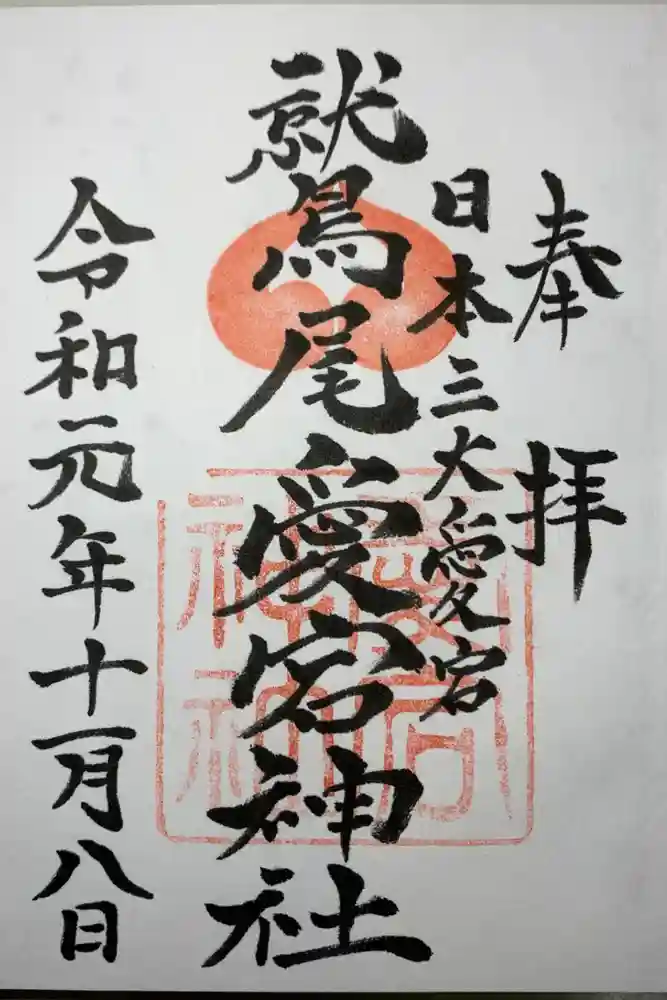 奉拝
日本三大愛宕
鷲尾愛宕神社
令和元年十一月八日
愛宕神社